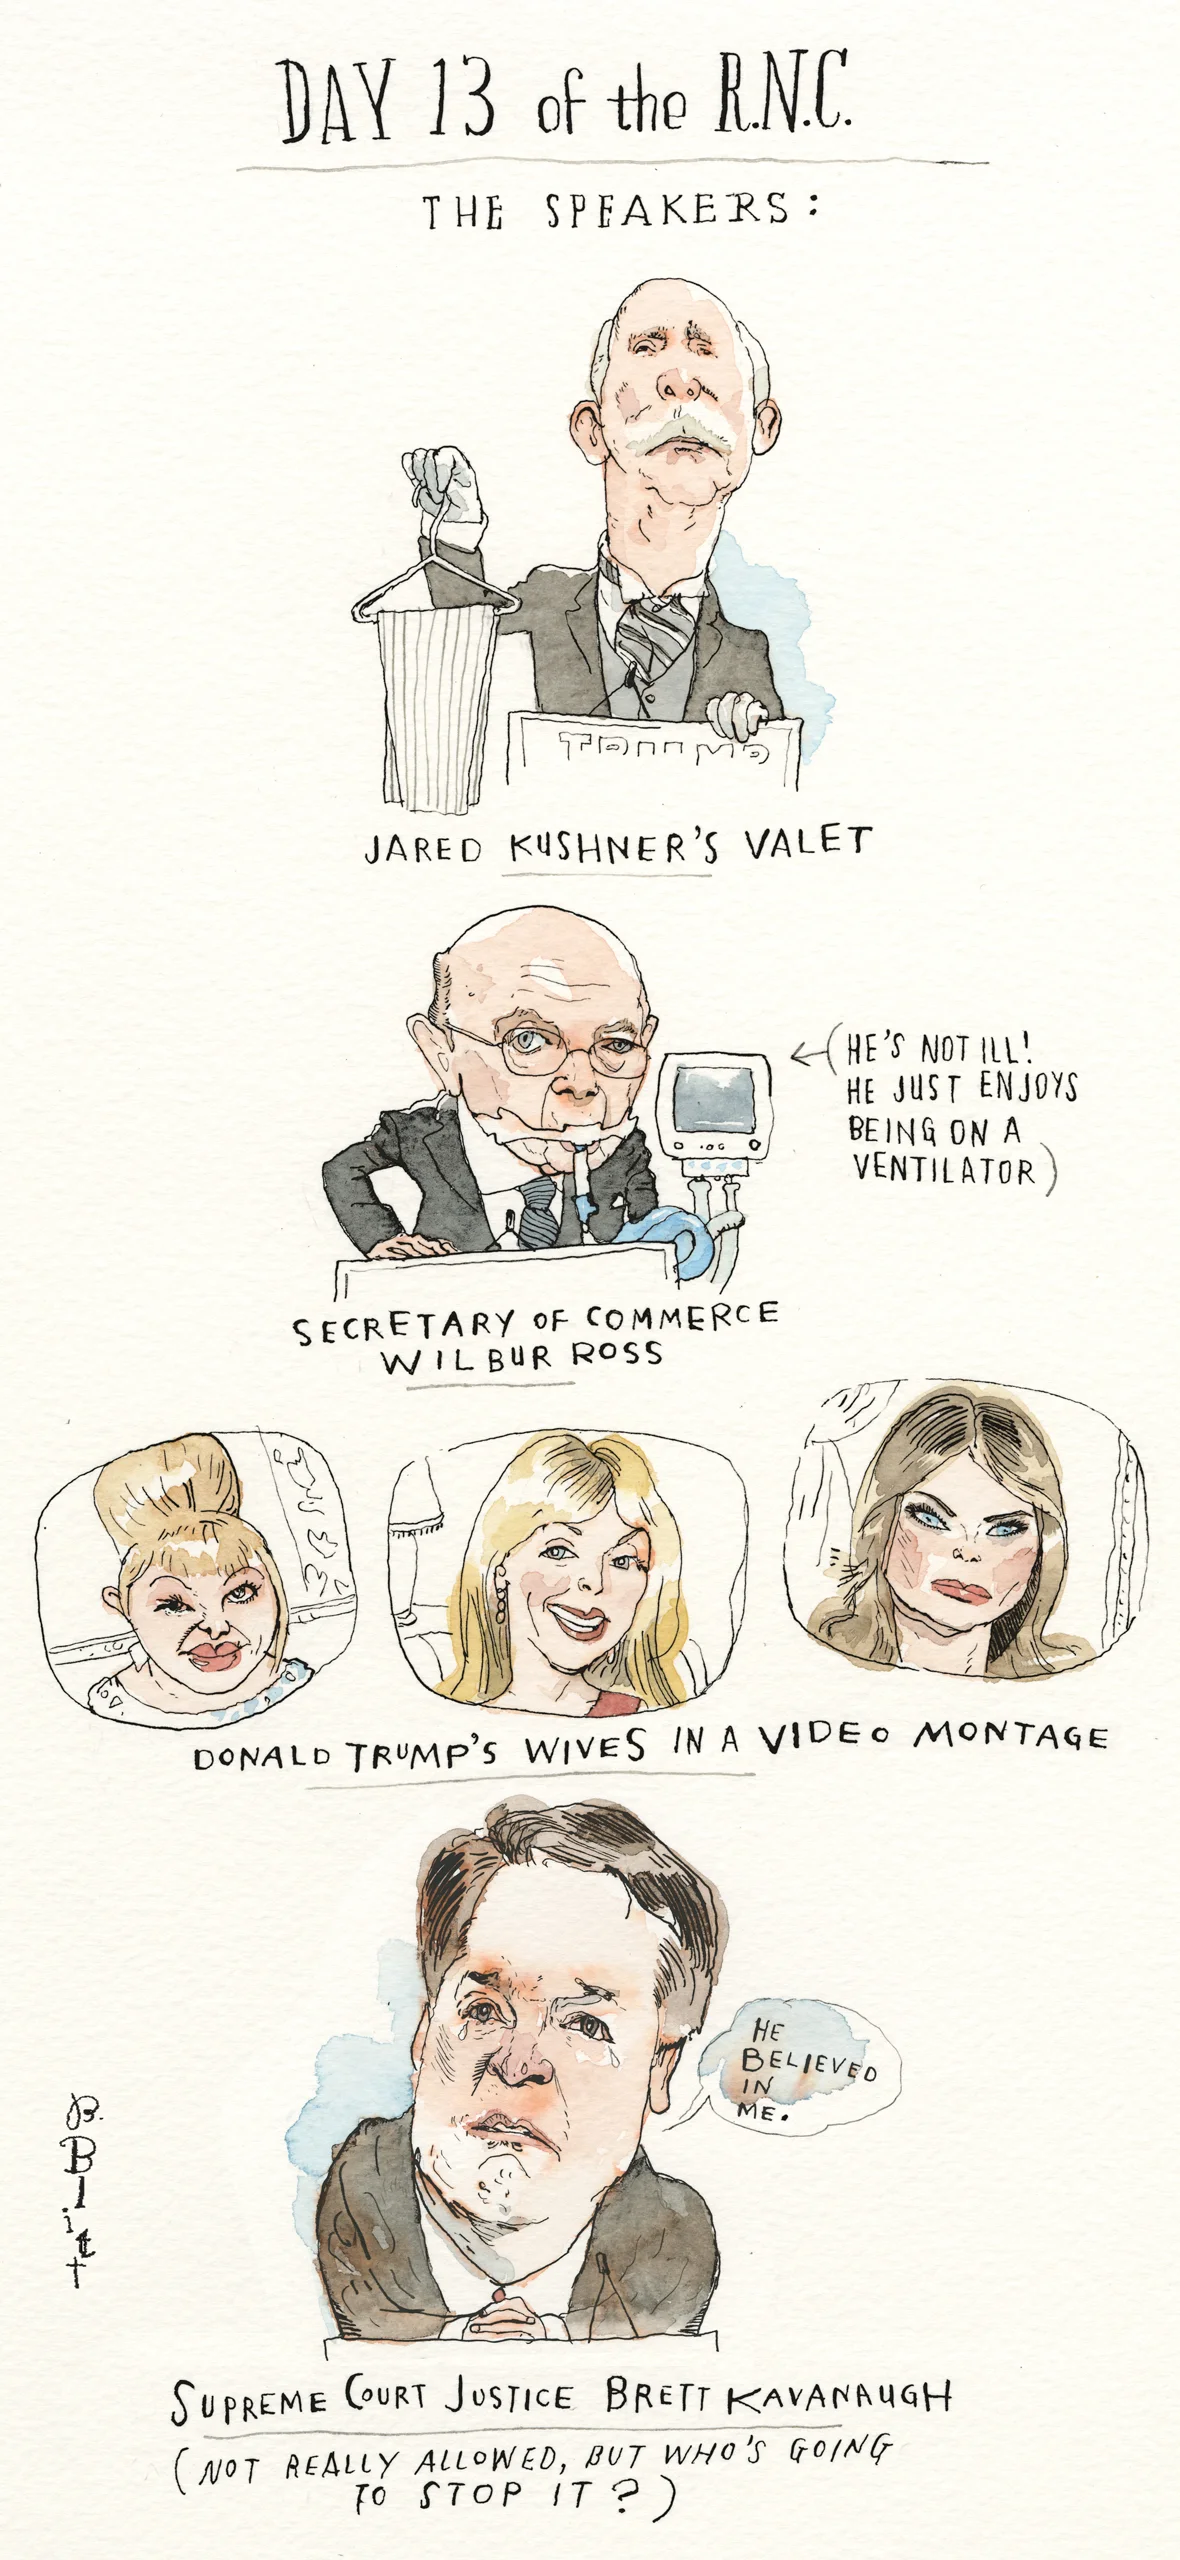 DAY 13 of the R.N.C.
THE SPEAKERS:
JARED KUSHNER'S VALET
(HE'S NOT ILL!
HE JUST ENJOYS
BEING ON A
VENTILATOR)
SECRETARY OF COMMERCE
WILBUR ROSS
DONALD TRUMP'S WIVES IN A VIDEO MONTAGE
HE
BELIEVED
IN
ME.
B. Blitt
SUPREME COURT JUSTICE BRETT KAVANAUGH
(NOT REALLY ALLOWED, BUT WHO'S GOING
TO STOP IT?)